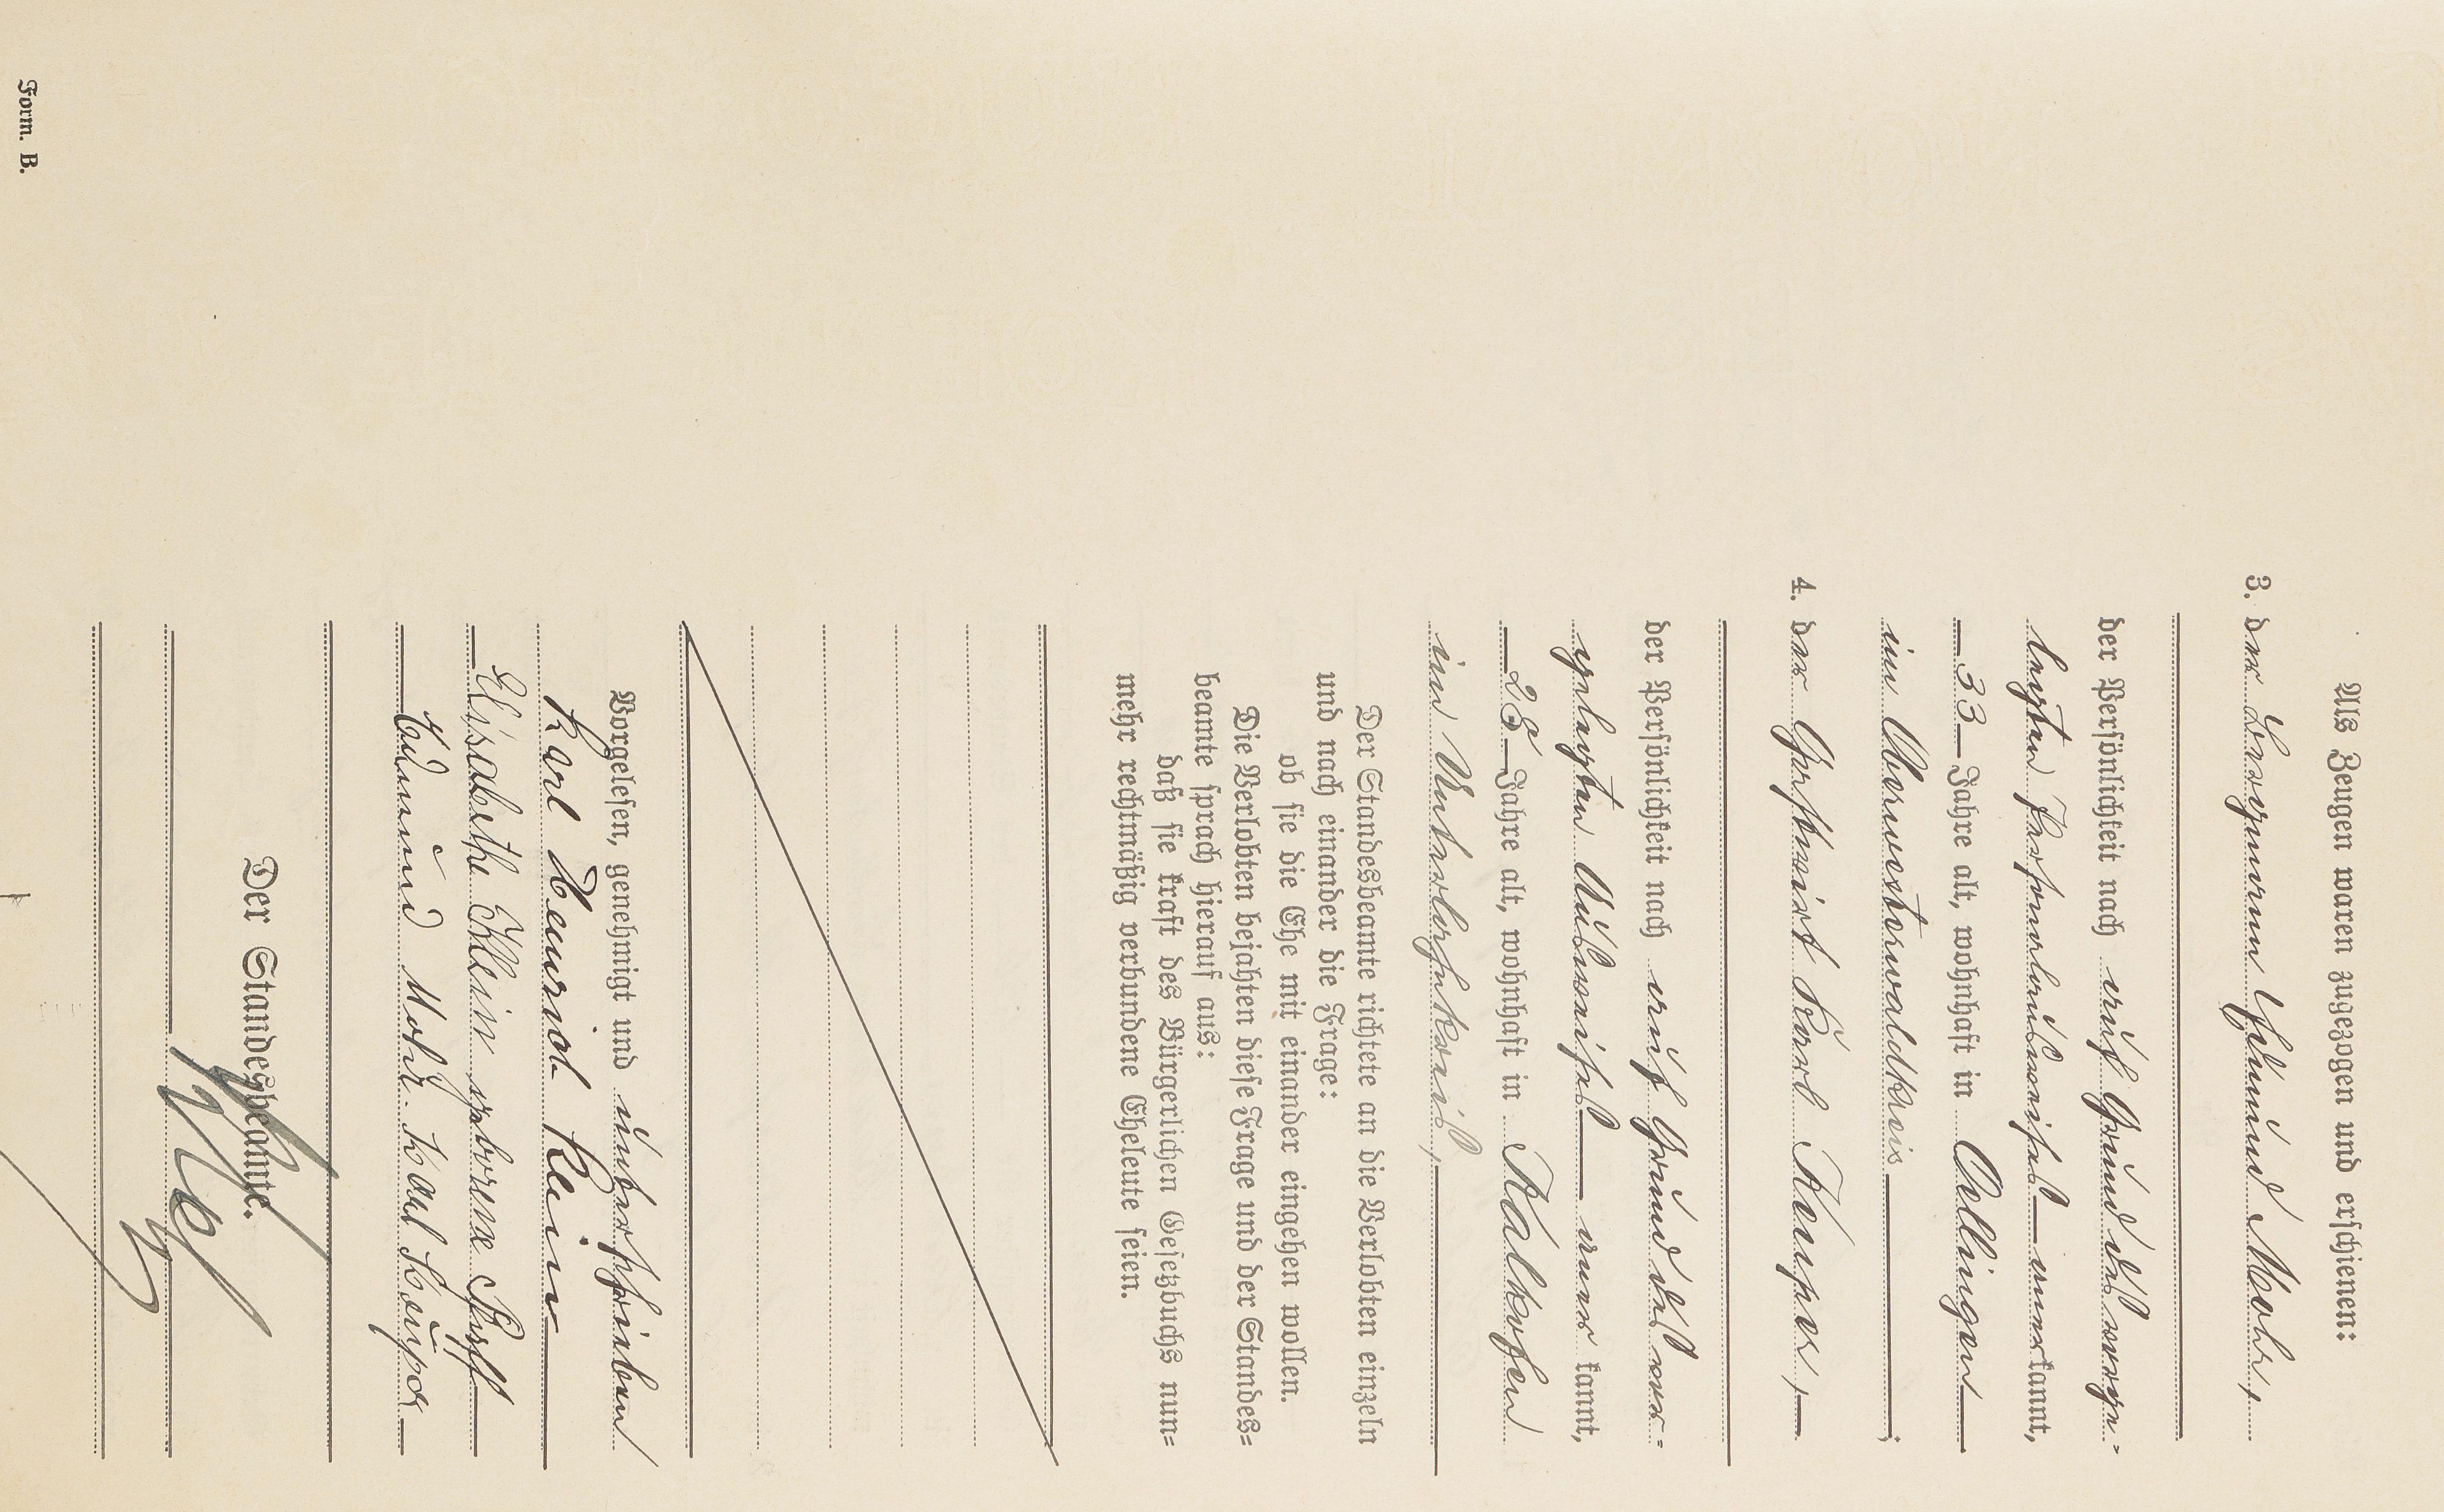 Als Zeugen waren zugezogen und erschienen:
3. der Bergmann Edmund Mohr,
der Persönlichkeit nach auf Grund des vorge-
legten Personalausweises anerkannt,
33 Jahre alt, wohnhaft in Aellingen
im Oberwesterwaldkreis;
4. der Gastwirt Karl
der Persönlichkeit nach auf Grund des vor-
gelegten Ausweises aner kannt,
28 Jahre alt, wohnhaft in Kalkofen
im Unterlahnkreis,
Der Standesbeamte richtete an die Verlobten einzeln
und nach einander die Frage:
ob sie die Ehe mit einander eingehen wollen.
Die Verlobten bejahten diese Frage und der Standes=
beamte sprach hierauf aus:
daß sie kraft des Bürgerlichen Gesetzbuchs nun=
mehr rechtmäßig verbundene Eheleute seien.
Vorgelesen, genehmigt und unterschrieben
Karl Heinrich Klein
Elisabethe Klein geborene
Edmund Mohr. Karl
Der Standesbeamte.
Form. B.